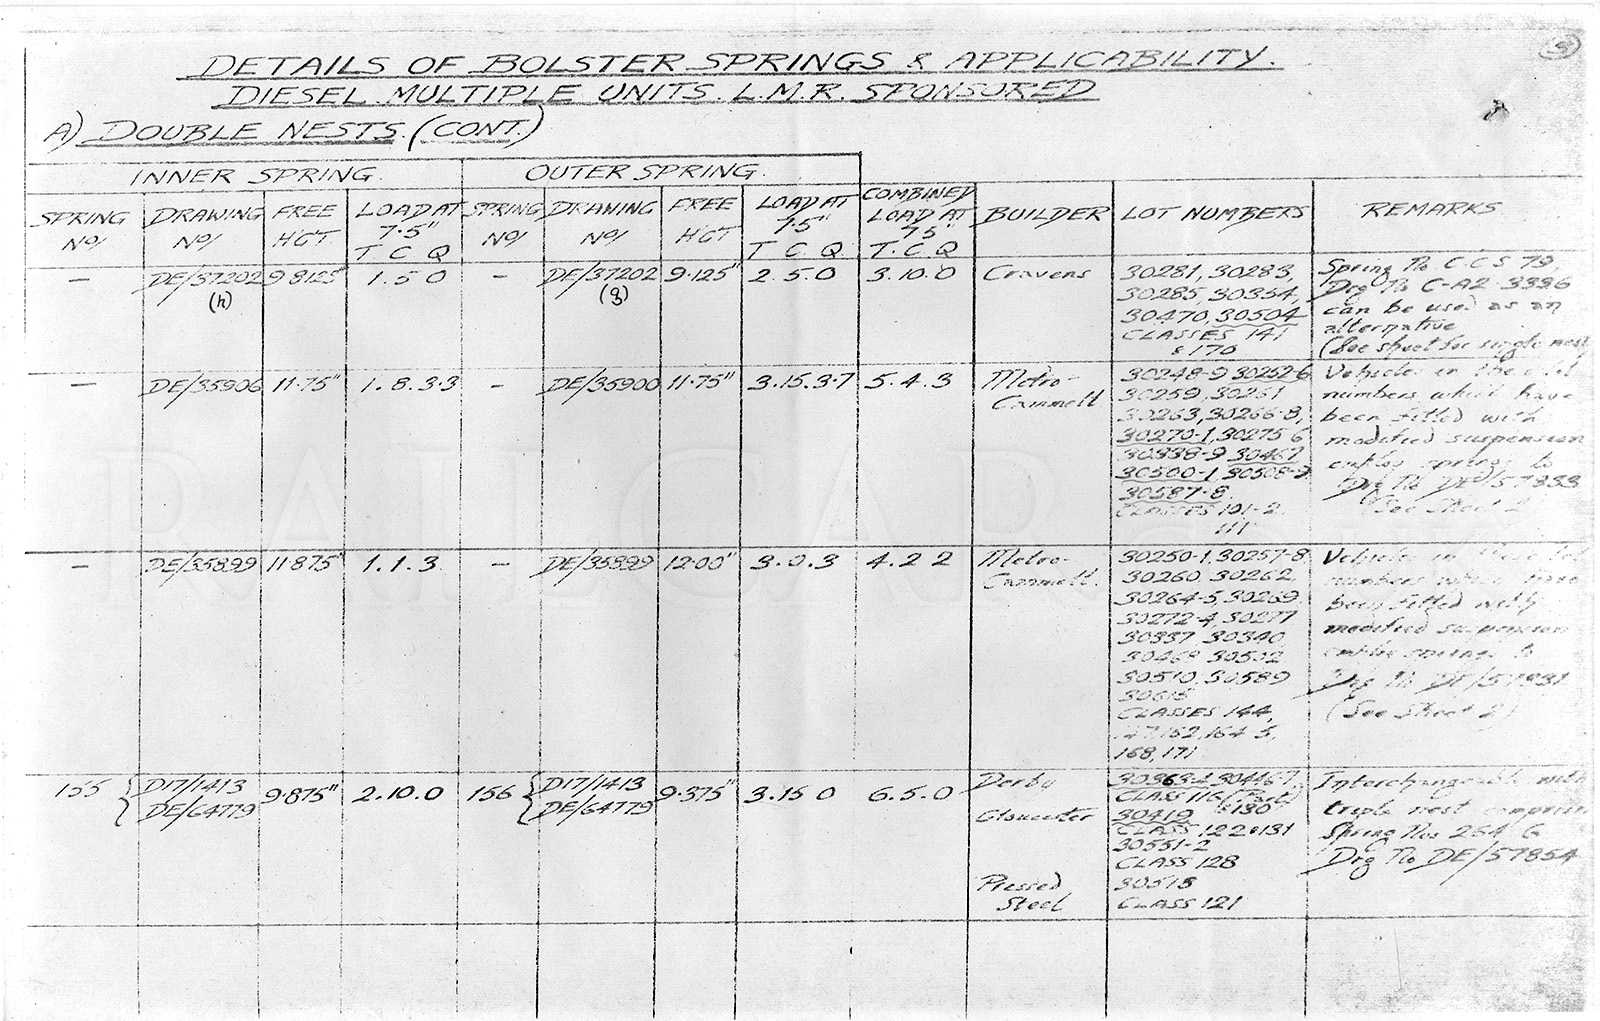 DETAILS OF BOLSTER SPRINGS & APPLICABILITY.
DIESEL MULTIPLE UNITS. L.M.R. SPONSORED
A) DOUBLE NESTS. (CONT.)
INNER SPRING. OUTER SPRING.
SPRING No/ DRAWING No/ FREE HGT LOAD AT 7.5" T C Q SPRING No/ DRAWING No/ FREE HGT LOAD AT 7.5" T C Q COMBINED LOAD AT 7.5" T.C.Q BUILDER LOT NUMBERS REMARKS
— DE/37202 (h) 9.8125" 1.5.0 — DE/37202 (g) 9.125" 2.5.0 3.10.0 Cravens
30281, 30283,
30285, 30354,
30470, 30504
CLASSES 141
& 170
Spring No C C S 79,
Drg No C-A2 3396
can be used as an
alternative
(See sheet for single nest
— DE/35906 11.75" 1.8.3.3 — DE/35900 11.75" 3.15.3.7 5.4.3 Metro-
Cammell
30248-9 30252-6
30259, 30261
30263, 30266-8,
30270-1, 30275 6
30338-9 30467
30500-1, 30508-9
30587-8.
CLASSES 101-2
111
Vehicles in the
numbers which have
been fitted with
modified suspension
employ springs to
Drg No DE/57833
(See Sheet 2
— DE/35899 11.875" 1.1.3. — DE/35899 12.00" 3.0.3 4.2 2 Metro-
Cammell.
30250-1, 30257-8
30260 30262,
30264-5, 30269
30272-4, 30277
30337 30340
30468 30502
30510, 30589
30615
CLASSES 144,
147, 162, 164 5,
168, 171
Vehicles in
numbers which have
been fitted with
modified suspension
employ springs to
Drg No DE/57831
(See Sheet 2)
155 { D17/1413 DE/64779 9.875" 2.10.0 156 { D17/1413 DE/64779 9.375" 3.15 0 6.5.0
Derby
Gloucester
Pressed
Steel
30363-4 30446-7
CLASS 116 (Part)
30419 & 130
CLASS 122 & 131
30551-2
CLASS 128
30518
CLASS 121
Interchangeable with
triple nest
Spring Nos 264 6
Drg No DE/57854
RAILCAR